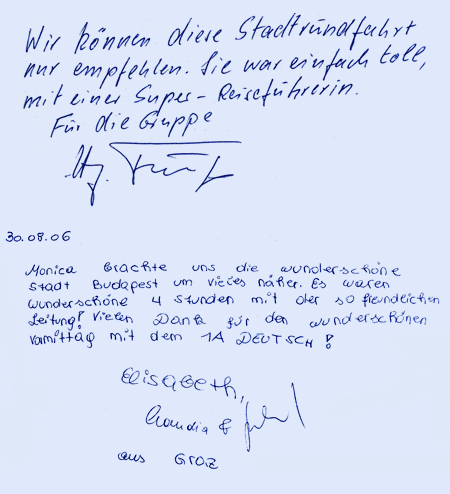 Wir können diese Stadtrundfahrt
nur empfehlen. Sie war einfach toll,
mit einer Super-Reiseführerin.
Für die Gruppe
30.08.06
Monica brachte uns die wunderschöne
Stadt Budapest um vieles näher. Es waren
wunderschöne 4 Stunden mit der so freundlichen
Leitung! Vielen Dank für den wunderschönen
Vormittag mit dem 1A DEUTSCH!
Elisabeth,
Claudia &
aus Graz